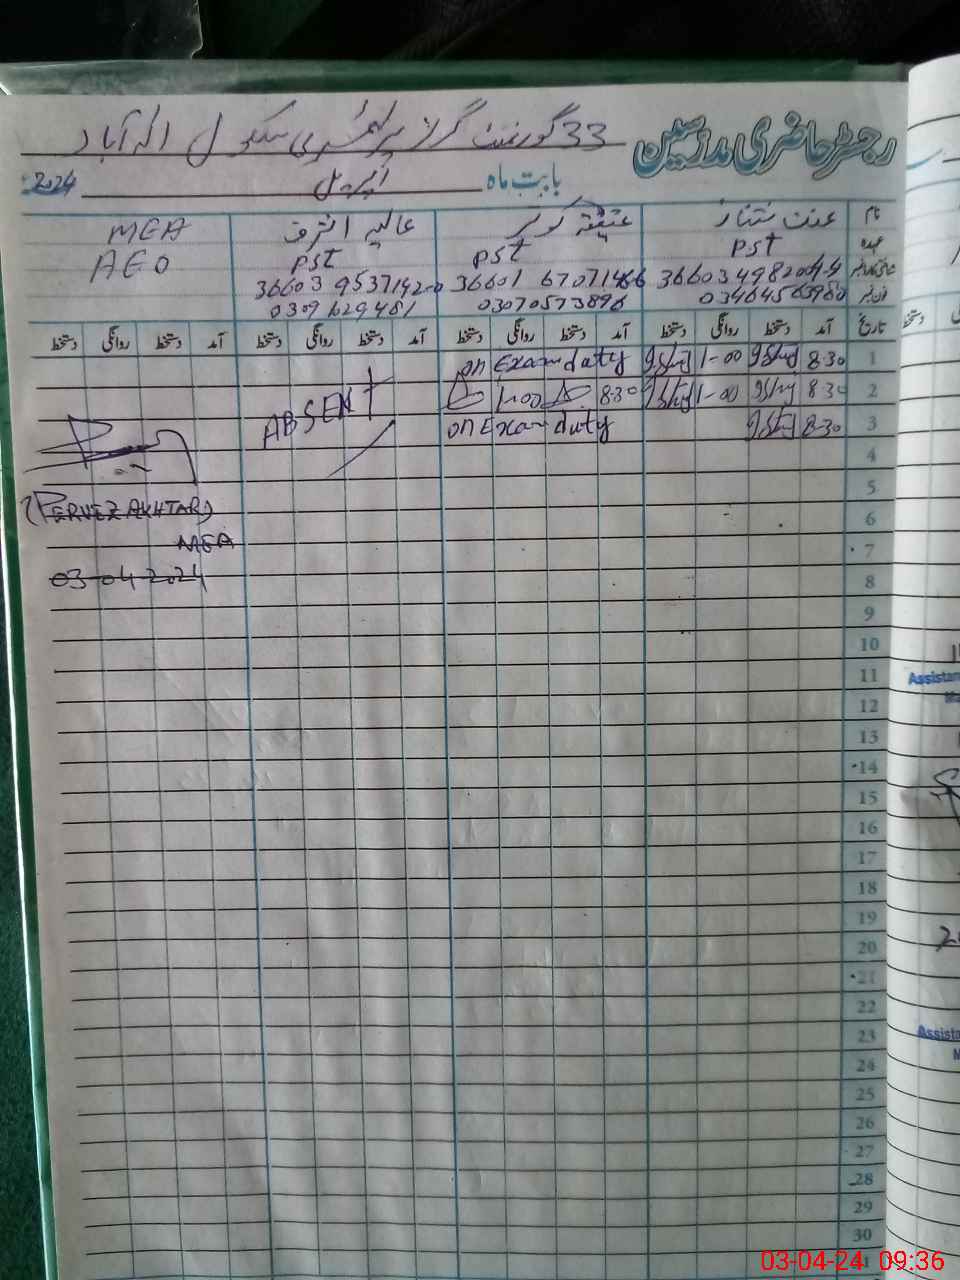 رجسٹر حاضری مدرسین
33 گورنمنٹ گرلز پرائمری سکول الہ آباد
بابت ماہ اپریل 2024ء
نام
عہدہ
تاریخ
PST
عالیہ اشرف
PST
36603 9537142-0
0309 629481
عتیقہ کوثر
PST
36601 6707146-6
03070573896
MEA
AEO
آمد دستخط روانگی دستخط آمد دستخط روانگی دستخط آمد دستخط روانگی دستخط آمد دستخط روانگی دستخط
1 8-30 1-00 on Exam duty
2 8-30 1-00 8-30 1-00
3 8-30 on Exam duty
ABSENT
4
5
(PERVEZ AKHTAR)
6
MEA
7
03-04-2024
8
9
10
11
12
13
14
15
16
17
18
19
20
21
22
23
24
25
26
27
28
29
30
Assistan
Assista
03-04-24 09:36